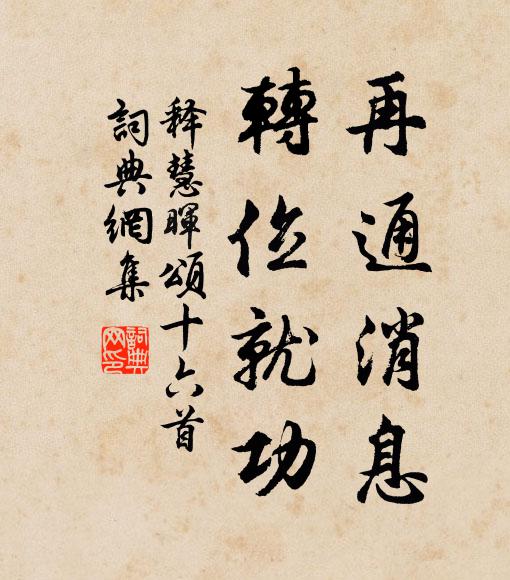 再通消息
轉位就功
释慧暉頌十六首
詞典網集
詞典网印